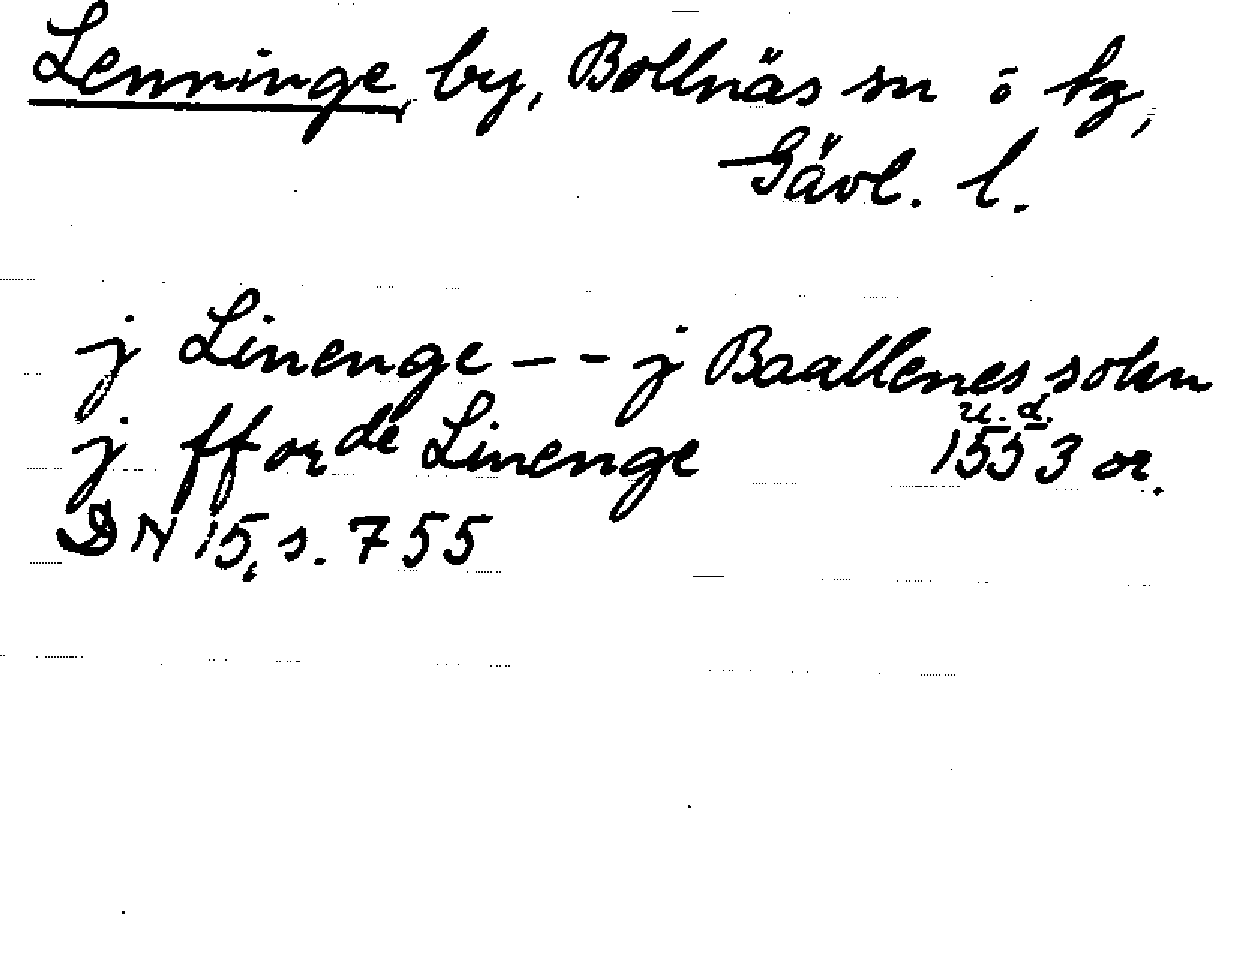 Lenninge, by, Bollnäs sn o kg,
Gävl. l.
j Linenge - - j Baallenes sokn
j fforde Linenge u.d. 1553 or.
DN 15, s. 755